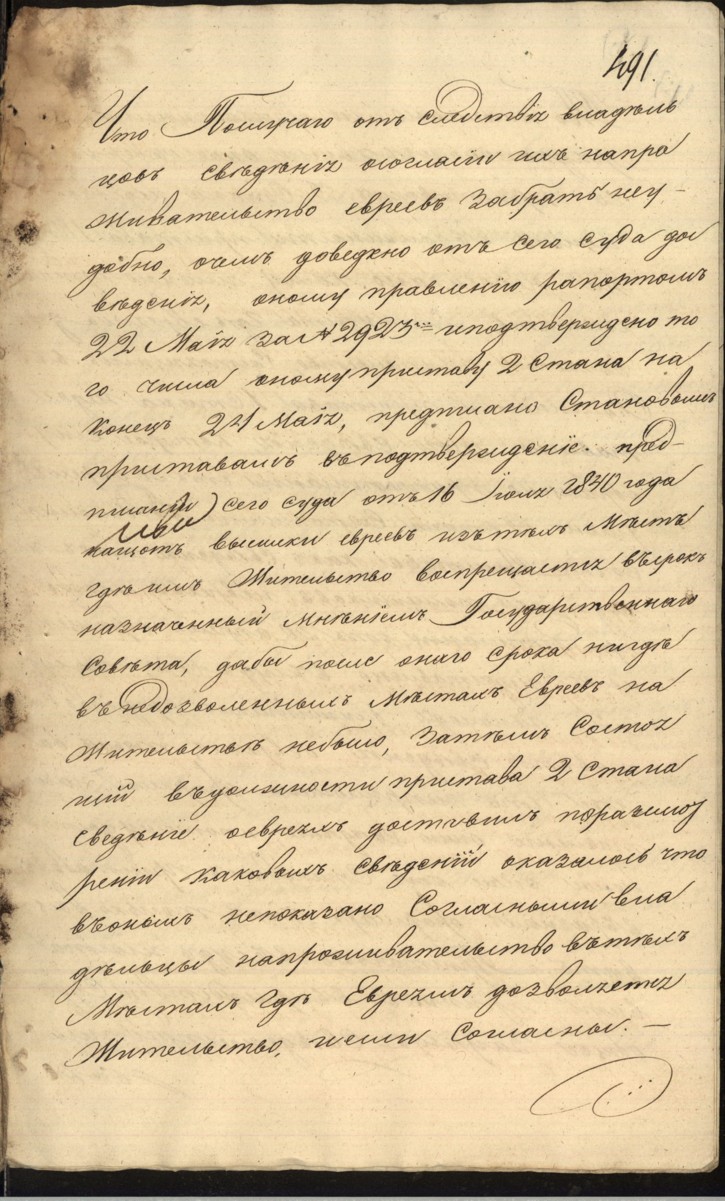 491.
Что Получаю отъ следствія владѣль
цовъ свѣдѣнія осогласіи ихъ напро
живательство евреевъ забрать неу-
добно, очемъ доведено отъ сего суда до
вѣденія, оному правленію рапортомъ
22 Маія за № 2923 иподтверждено то
го числа оному приставу 2 Стана на
конецъ 24 Маія, предписано Становымъ
приставамъ въподтвержденіе пред-
писаній сего суда отъ 16 Іюля 1840 года
нащотъ высылки евреевъ изътѣхъ Мѣстъ
гдѣ имъ Жительство воспрещается въсрокъ
назначенный Мнѣніемъ Государственнаго
Совѣта, дабы после онаго срока нигдѣ
въ недозволенныхъ Мѣстахъ Евреевъ на
Жительствѣ небыло, Затѣмъ Состоя
щій въдолжности пристава 2 Стана
сведѣніе оевреяхъ доставилъ поразсмот
реніи каковыхъ свѣденій оказалось что
въономъ непоказано Согласныли вла
дѣльцы напроживательство вътѣхъ
Мѣстахъ гдѣ Евреямъ дозволяется
Жительство, иесли Согласны. —